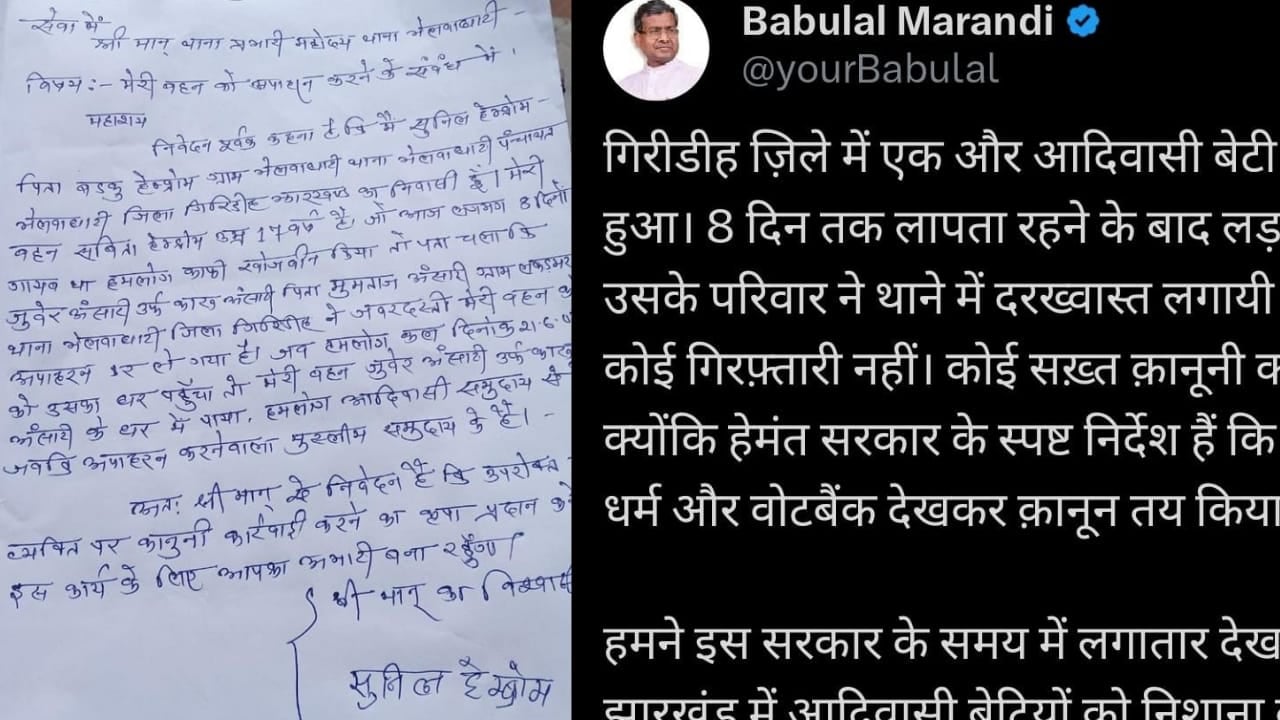 सेवा में
श्री मान् थाना प्रभारी महोदय थाना भेलवाघाटी -
विषय :- मेरी बहन को अपाहरन करने के संबंध में ।
महाशय
निवेदन पूर्वक कहना है कि मैं सुनिल हेम्ब्रोम -
पिता बड़कु हेम्ब्रोम ग्राम भेलवाघाटी थाना भेलवाघाटी पंचायत
भेलवाघाटी जिला गिरिडीह झारखण्ड का निवासी हूँ। मेरी
बहन सविता हेम्ब्रोम उम्र 17 वर्ष है, जो आज लगभग 8 दिनों
गायब था हमलोग काफी खोजबीन किया तो पता चला कि
जुवेर अंसारी उर्फ कारु अंसारी पिता मुमताज अंसारी ग्राम
थाना भेलवाघाटी जिला गिरिडीह ने जबरदस्ती मेरी बहन को
अपाहरन कर ले गया है। जब हमलोग कल दिनांक 21.6
को उसका घर पहुँचा तो मेरी बहन जुवेर अंसारी उर्फ कारु
अंसारी के घर में पाया, हमलोग आदिवासी समुदाय से
जबकि अपाहरन करनेवाला मुस्लीम समुदाय के है। -
अतः श्री मान् से निवेदन है कि उपरोक्त
व्यक्ति पर कानुनी कार्रवाही करने का कृपा प्रदान करें
इस कार्य के लिए आपका अभारी बना रहुँगा।
श्री मान् का विश्वासी
सुनिल हेम्ब्रोम
Babulal Marandi
@yourBabulal
गिरीडीह ज़िले में एक और आदिवासी बेटी
हुआ। 8 दिन तक लापता रहने के बाद लड़
उसके परिवार ने थाने में दरख्वास्त लगायी
कोई गिरफ़्तारी नहीं। कोई सख़्त क़ानूनी क
क्योंकि हेमंत सरकार के स्पष्ट निर्देश हैं कि
धर्म और वोटबैंक देखकर क़ानून तय किया
हमने इस सरकार के समय में लगातार देख
झारखंड में आदिवासी बेटियों को निशाना